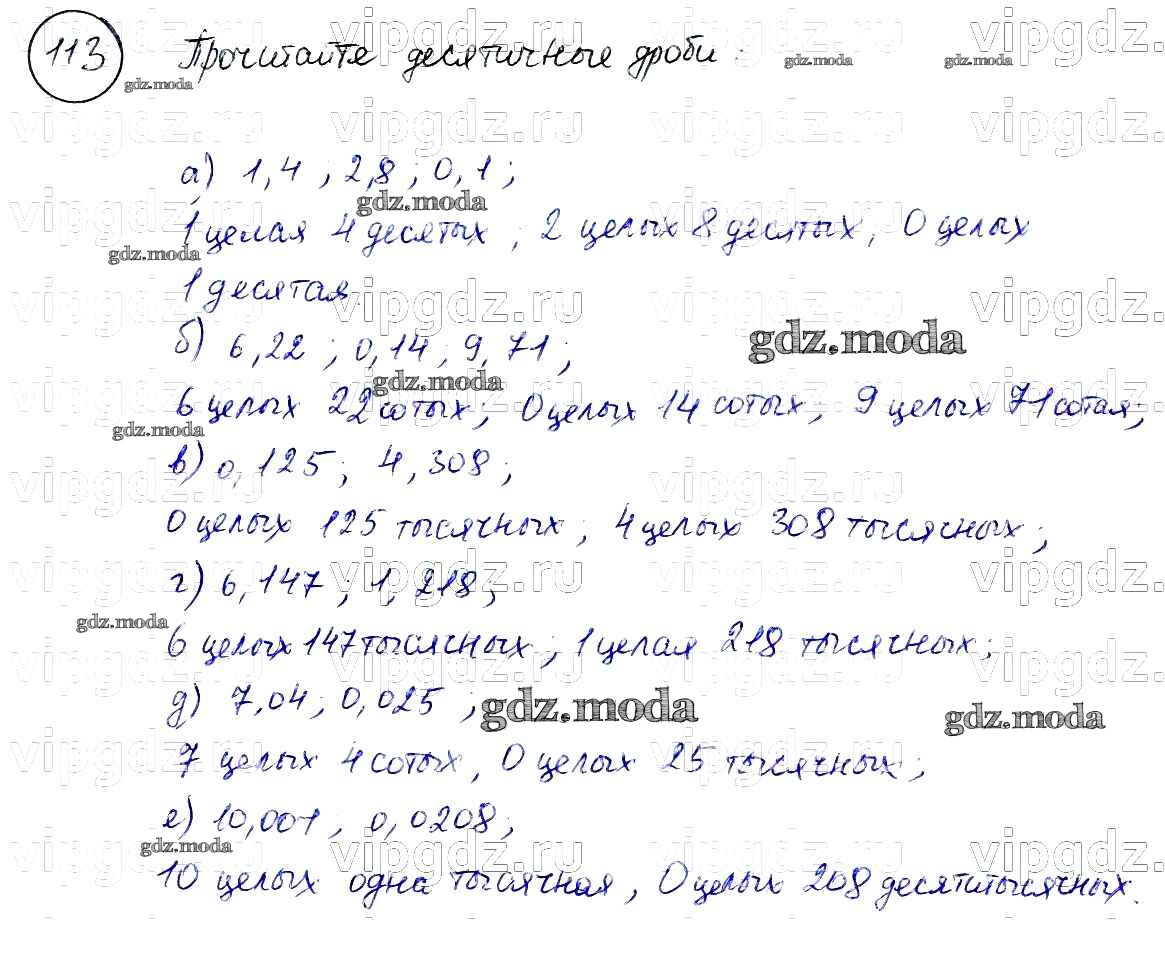 113 Прочитайте десятичные дроби:
а) 1,4 ; 2,8 ; 0,1 ;
1 целая 4 десятых , 2 целых 8 десятых, 0 целых
1 десятая.
б) 6,22 ; 0,14 , 9,71 ;
6 целых 22 сотых; 0 целых 14 сотых; 9 целых 71 сотая;
в) 0,125 ; 4,308 ;
0 целых 125 тысячных ; 4 целых 308 тысячных ;
г) 6,147 ; 1,218 ;
6 целых 147 тысячных ; 1 целая 218 тысячных ;
д) 7,04 ; 0,025 ;
7 целых 4 сотых , 0 целых 25 тысячных ;
е) 10,001 , 0,0208 ;
10 целых одна тысячная , 0 целых 208 десятитысячных.
vipgdz.ru
gdz.moda